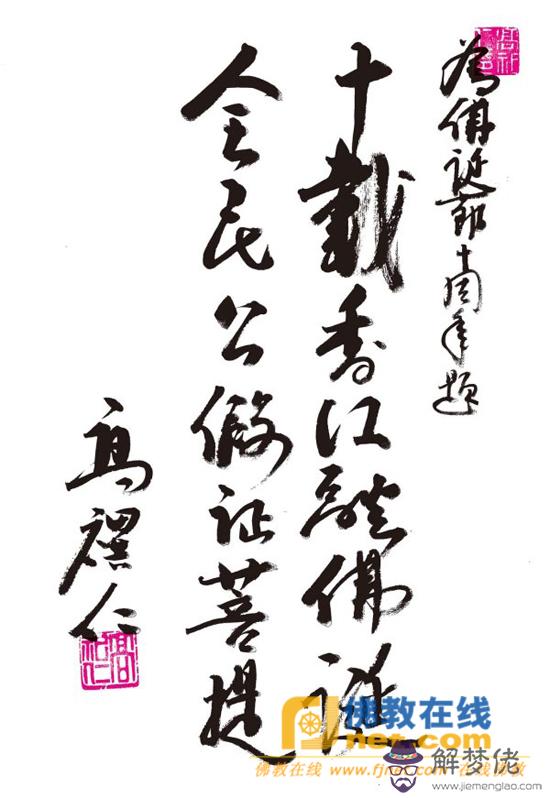 為佛誕節十周年題
十載香江佛誕
全民公假证菩提
高禩仁
佛教在线
net.com
佛教在线 www.fjnet.com
解梦佬
www.jiemenglao.com